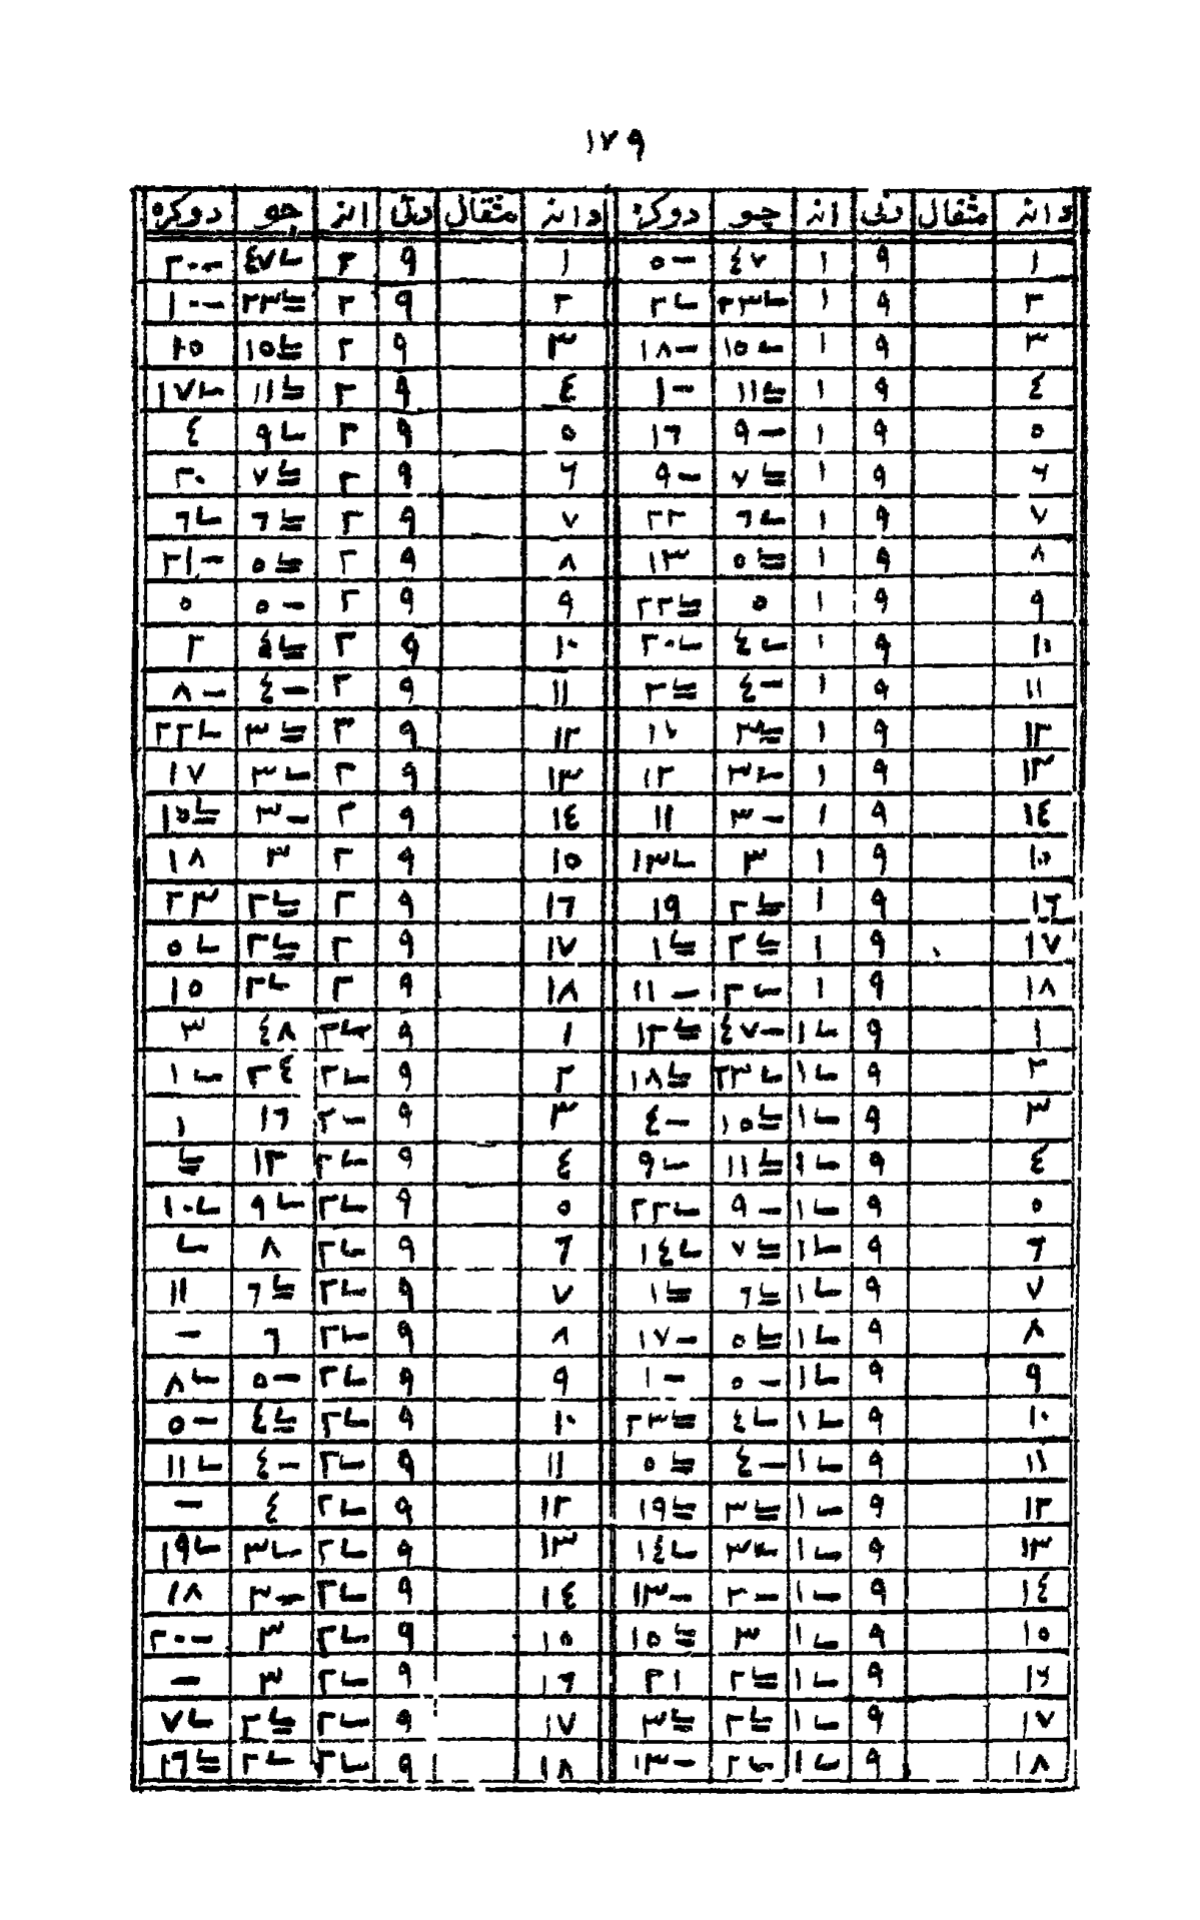 ١٧٩
دانه مثقال رتی انه جو دوكره دانه مثقال رتی انه جو دوكره
١ ٩ ١ ٤٧ -٥ ١ ٩ ٢ ٤٧ -٢٠
٢ ٩ ١ ٢٣ ٢ ٢ ٩ ٢ ٢٣ -١٠
٣ ٩ ١ ١٥ -١٨ ٣ ٩ ٢ ١٥
٤ ٩ ١ ١١ -١ ٤ ٩ ٢ ١١ ١٧
٥ ٩ ١ -٩ ١٦ ٥ ٩ ٢ ٩ ٤
٦ ٩ ١ ٧ -٩ ٦ ٩ ٢ ٧ ٢٠
٧ ٩ ١ ٦ ٢٢ ٧ ٩ ٢ ٦ ٦
٨ ٩ ١ ٥ ١٣ ٨ ٩ ٢ ٥ -٢١
٩ ٩ ١ ٥ ٢٢ ٩ ٩ ٢ -٥ ٥
١٠ ٩ ١ ٤ ٢٠ ١٠ ٩ ٢ ٤ ٢
١١ ٩ ١ -٤ ٢ ١١ ٩ ٢ -٤ -٨
١٢ ٩ ١ ٣ ١٢ ٩ ٢ ٣ ٢٢
١٣ ٩ ١ ٣ ١٢ ١٣ ٩ ٢ ٣ ١٧
١٤ ٩ ١ -٣ ١١ ١٤ ٩ ٢ -٣ ١٥
١٥ ٩ ١ ٣ ١٣ ١٥ ٩ ٢ ٣ ١٨
١٦ ٩ ١ ٢ ١٩ ١٦ ٩ ٢ ٢ ٢٣
١٧ ٩ ١ ٢ ١ ١٧ ٩ ٢ ٢ ٥
١٨ ٩ ١ ٢ -١١ ١٨ ٩ ٢ ٢ ١٥
١ ٩ ١ -٤٧ ١٢ ١ ٩ ٢ ٤٨ ٣
٢ ٩ ١ ٢٣ ١٨ ٢ ٩ ٢ ٢٤ ١
٣ ٩ ١ ١٥ -٤ ٣ ٩ ٢ ١٦ ١
٤ ٩ ١ ١١ ٩ ٤ ٩ ٢ ١٢
٥ ٩ ١ -٩ ٢٢ ٥ ٩ ٢ ٩ ١٠
٦ ٩ ١ ٧ ١٤ ٦ ٩ ٢ ٨
٧ ٩ ١ ٦ ١ ٧ ٩ ٢ ٦ ١١
٨ ٩ ١ ٥ -١٧ ٨ ٩ ٢ ٦ -
٩ ٩ ١ -٥ -١ ٩ ٩ ٢ -٥ ٨
١٠ ٩ ١ ٤ ٢٣ ١٠ ٩ ٢ ٤ -٥
١١ ٩ ١ -٤ ٥ ١١ ٩ ٢ -٤ ١١
١٢ ٩ ١ ٣ ١٩ ١٢ ٩ ٢ ٤ -
١٣ ٩ ١ ٣ ١٤ ١٣ ٩ ٢ ٣ ١٩
١٤ ٩ ١ -٣ -١٣ ١٤ ٩ ٢ -٣ ١٨
١٥ ٩ ١ ٣ ١٥ ١٥ ٩ ٢ ٣ -٢٠
١٦ ٩ ١ ٢ ٢١ ١٦ ٩ ٢ ٣ -
١٧ ٩ ١ ٢ ٣ ١٧ ٩ ٢ ٢ ٧
١٨ ٩ ١ ٢ -١٣ ١٨ ٩ ٢ ٢ ١٦